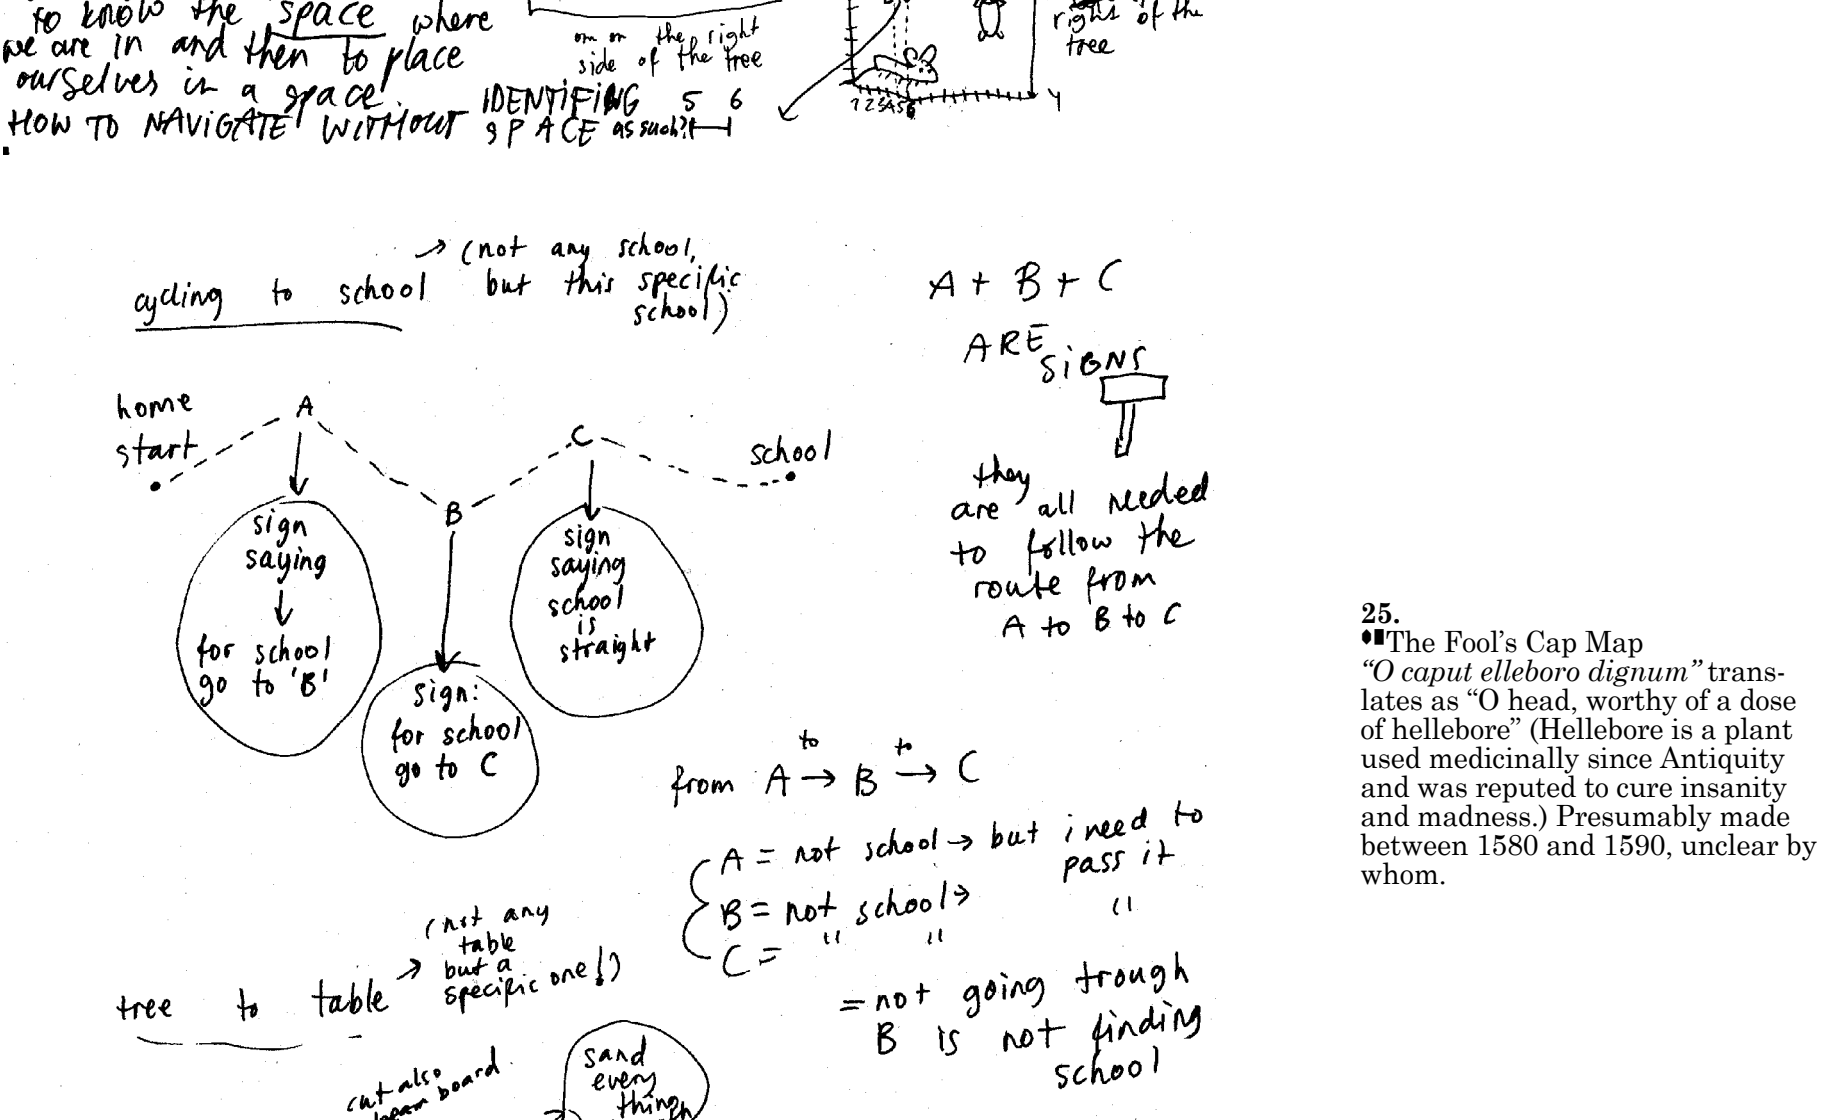 to know the space where
we are in and then to place
ourselves in a space.
HOW TO NAVIGATE WITHOUT IDENTIFING
SPACE as such?
on the right
side of the tree
5 6
right of the
tree
1 2 3 4 5 6
Y
cycling to school → (not any school,
but this specific
school)
home
start
A
B
C
school
sign
saying
↓
for school
go to 'B'
sign:
for school
go to C
sign
saying
school
is
straight
A + B + C
ARE
SIGNS
they
are all needed
to follow the
route from
A to B to C
to to
from A → B → C
A = not school → but i need to
pass it
B = not school → "
C = " "
= not going trough
B is not finding
school
tree to table → (not any
table
but a
specific one!)
cut also
board
sand
every
thing
25.
The Fool's Cap Map
“O caput elleboro dignum” trans-
lates as “O head, worthy of a dose
of hellebore” (Hellebore is a plant
used medicinally since Antiquity
and was reputed to cure insanity
and madness.) Presumably made
between 1580 and 1590, unclear by
whom.